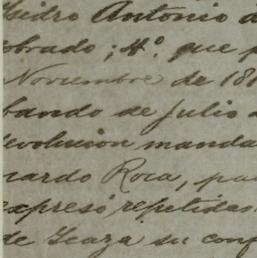 Isidro Antonio d
obrado; 4º. que p
Noviembre de 181
bando de Julio d
evolucion manda
cardo Roca, pa
expresó repetidas
de Icaza su conf